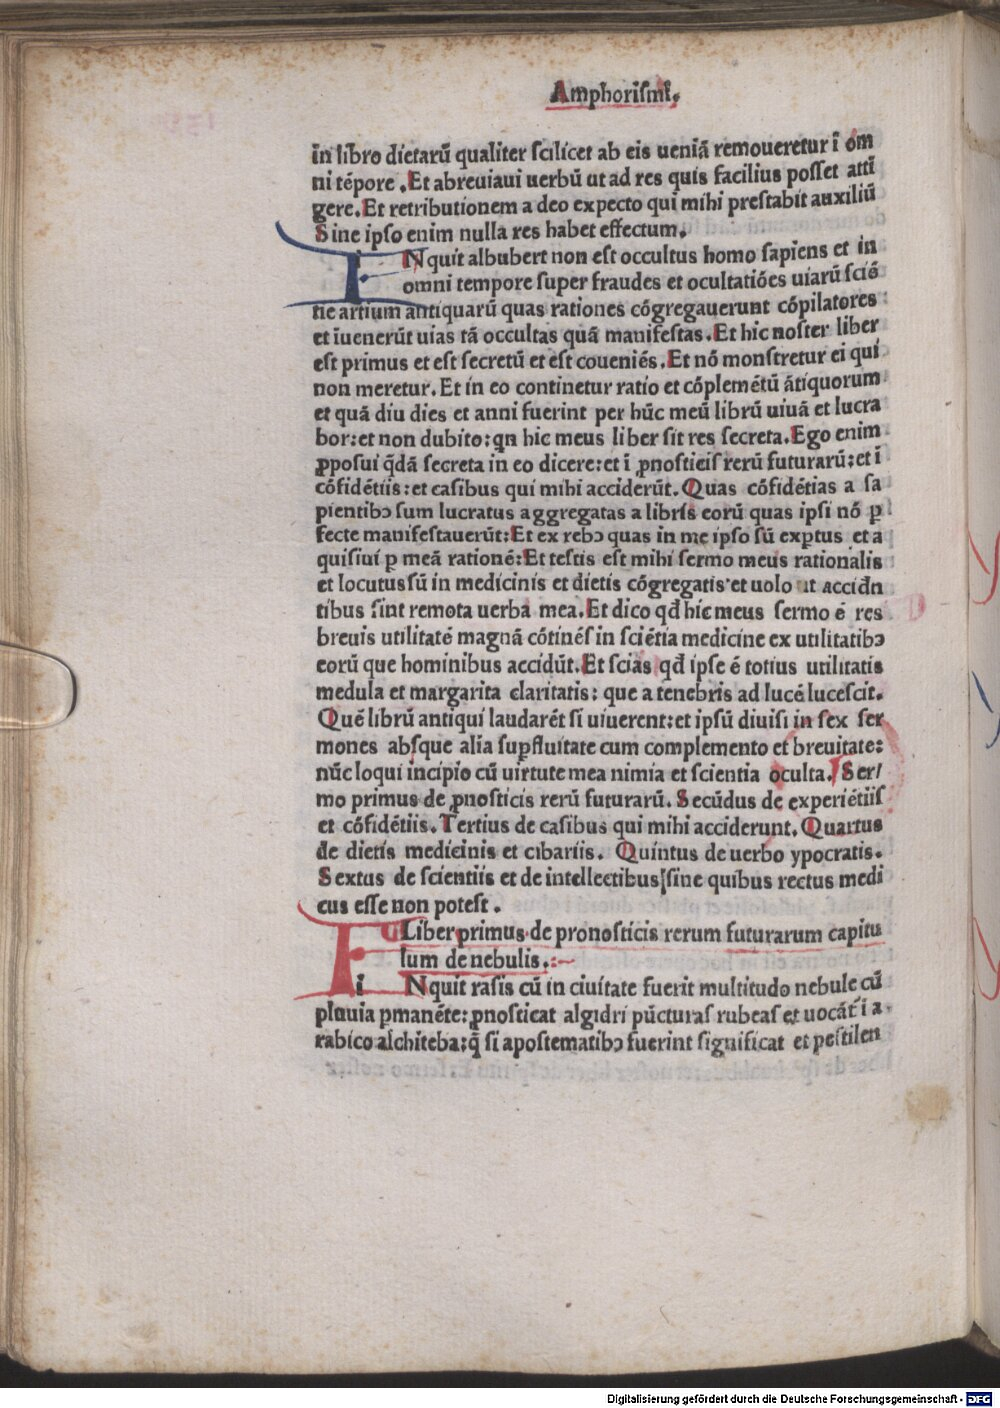 Amphorismi.
in libro dietarū qualiter scilicet ab eis ueniā remoueretur ī om
ni tēpore .Et abreuiaui uerbū ut ad res quis facilius posset atti̅
gere.Et retributionem a deo expecto qui mihi prestabit auxiliū
Sine ipso enim nulla res habet effectum.
iNquit albubert non est occultus homo sapiens et in
omni tempore super fraudes et ocultatiōes uiarū sciē
tie artium antiquarū quas rationes cōgregauerunt cōpilatores
et īuenerūt uias tā occultas quā manifestas.Et hic noster liber
est primus et est secretū et est coueniēs.Et nō monstretur ei qui
non meretur.Et in eo continetur ratio et cōplemētū ātiquorum
et quā diu dies et anni fuerint per hūc meū librū uiuā et lucra
bor:et non dubito:qn hic meus liber sit res secreta.Ego enim
ꝓposui q̄dā secreta in eo dicere:et ī ꝓnosticis rerū futurarū:et ī
cōfidētiis:et casibus qui mihi acciderūt.Quas cōfidētias a sa
pientibꝫ sum lucratus aggregatas a libris eorū quas ipsi nō ꝑ
fecte manifestauerūt:Et ex rebꝫ quas in me ipso sū exꝑtus et a
quisiui ꝑ meā rationē:Et testis est mihi sermo meus rationalis
et locutus sū in medicinis et dietis cōgregatis et uolo ut accidn̄
tibus sint remota uerba mea.Et dico qđ hic meus sermo ē res
breuis utilitatē magnā cōtinēs in sciētia medicine ex utilitatibꝫ
eorū que hominibus accidūt.Et scias qđ ipse ē totius utilitatis
medula et margarita claritatis: que a tenebris ad lucē lucescit.
Quē librū antiqui laudarēt si uiuerent:et ipsū diuisi in sex ser
mones absque alia suꝑfluitate cum complemento et breuitate:
nūc loqui incipio cū uirtute mea nimia et scientia oculta. Ser/
mo primus de ꝓnosticis rerū futurarū. Secūdus de experiētiis
et cōfidētiis.Tertius de casibus qui mihi acciderunt.Quartus
de dietis medicinis et cibariis. Quintus de uerbo ypocratis.
Sextus de scientiis et de intellectibus sine quibus rectus medi
cus esse non potest.
Liber primus de pronosticis rerum futurarum capitu
lum de nebulis.
iNquit rasis cū in ciuitate fuerit multitudo nebule cū
pluuia ꝑmanēte:ꝓnosticat algidri pūcturas rubeas et uocāt ī a
rabico alchiteba:q̄ si apostematibꝫ fuerint significat et pestilen
Digitalisierung gefördert durch die Deutsche Forschungsgemeinschaft - DFG